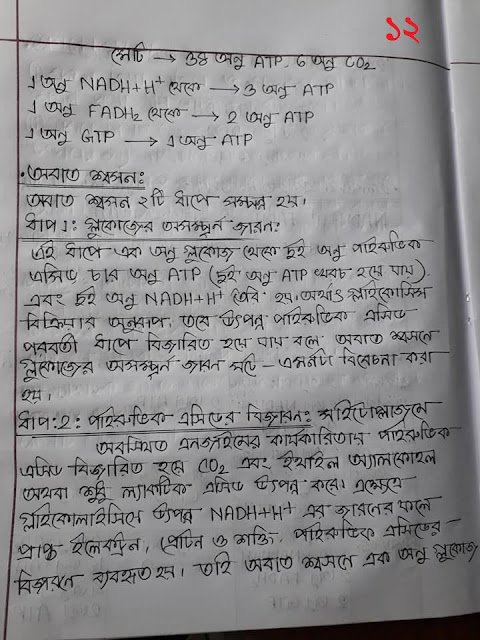 ১২
মোট → ৩৪ অনু ATP ৬ অনু CO₂
১ অনু NADH+H⁺ থেকে → ৩ অনু ATP
১ অনু FADH₂ থেকে → 2 অনু ATP
১ অনু GTP → ১ অনু ATP
• অবাত শ্বসন:
অবাত শ্বসন ২টি ধাপে সম্পন্ন হয়।
ধাপ ১: গ্লুকোজের অসম্পূর্ন জারন:
এই ধাপে এক অনু গ্লুকোজ থেকে দুই অনু পাইরুভিক
এসিড চার অনু ATP (দুই অনু ATP খরচ হয়ে যায়)
এবং দুই অনু NADH+H⁺ তৈরি হয়। অর্থাৎ গ্লাইকোলিসিস
বিক্রিয়ার অনুরূপ, তবে উৎপন্ন পাইরুভিক এসিড
পরবর্তী ধাপে বিজারিত হয়ে যায় বলে অবাত শ্বসনে
গ্লুকোজের অসম্পূর্ন জারন ঘটে - এমনটা বিবেচনা করা
হয়।
ধাপ: 2: পাইরুভিক এসিডের বিজারন: সাইটোপ্লাজমে
অবস্থিত এনজাইমের কার্যকারিতায় পাইরুভিক
এসিড বিজারিত হয়ে CO₂ এবং ইথাইল অ্যালকোহল
অথবা শুধু ল্যাকটিক এসিড উৎপন্ন করে। এক্ষেত্রে
গ্লাইকোলাইসিসে উৎপন্ন NADH+H⁺ এর জারনের ফলে
প্রাপ্ত ইলেকট্রন, প্রোটন ও শক্তি পাইরুভিক এসিডের
বিজারনে ব্যবহৃত হয়। তাই অবাত শ্বসনে এক অনু গ্লুকোজ